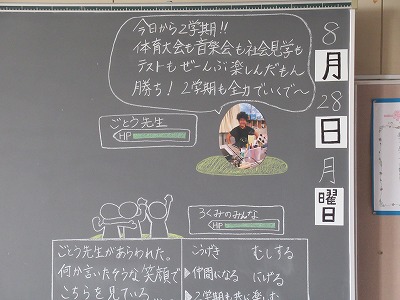 今日から2学期!!
体育大会も音楽会も社会見学も
テストもぜーんぶ楽しんだもん
勝ち!2学期も全力でいくで〜
8
月
28
日
月
曜
日
ごとう先生
HP
3くみのみんな
HP
ごとう先生があらわれた。
何か言いたそうな笑顔で
こちらを見ている…
こうげき むしする
▶仲間になる にげる
▶2学期も共に楽しむ